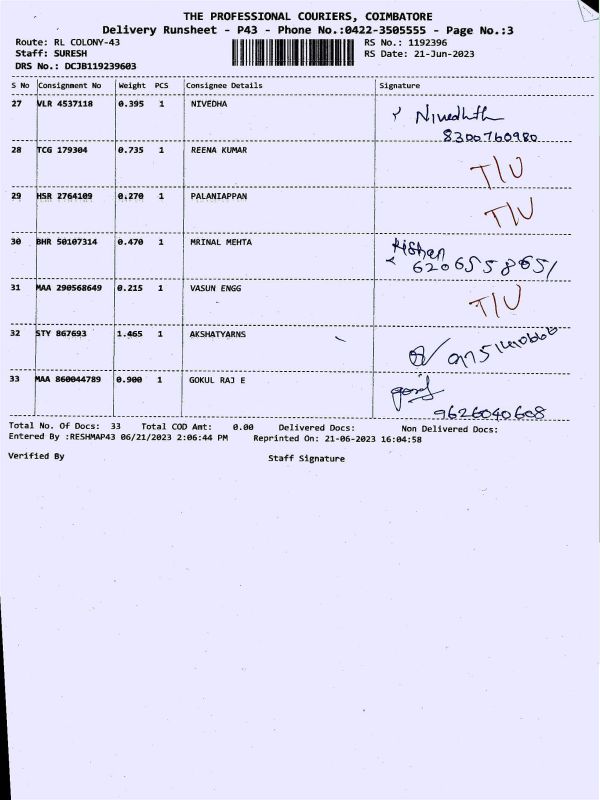 THE PROFESSIONAL COURIERS, COIMBATORE
Delivery Runsheet - P43 - Phone No.:0422-3505555 - Page No.:3
Route: RL COLONY-43 RS No.: 1192396
Staff: SURESH RS Date: 21-Jun-2023
DRS No.: DCJB119239603
S No Consignment No Weight PCS Consignee Details Signature
27 VLR 4537118 0.395 1 NIVEDHA Nivedhth
8300760980
28 TCG 179304 0.735 1 REENA KUMAR T/U
29 HSR 2764109 0.270 1 PALANIAPPAN T/U
30 BHR 50107314 0.470 1 MRINAL MEHTA Kishan
6206558651
31 MAA 290568649 0.215 1 VASUN ENGG T/U
32 STY 867693 1.465 1 AKSHATYARNS
33 MAA 860044789 0.900 1 GOKUL RAJ E
9626040608
Total No. Of Docs: 33 Total COD Amt: 0.00 Delivered Docs: Non Delivered Docs:
Entered By :RESHMAP43 06/21/2023 2:06:44 PM Reprinted On: 21-06-2023 16:04:58
Verified By Staff Signature